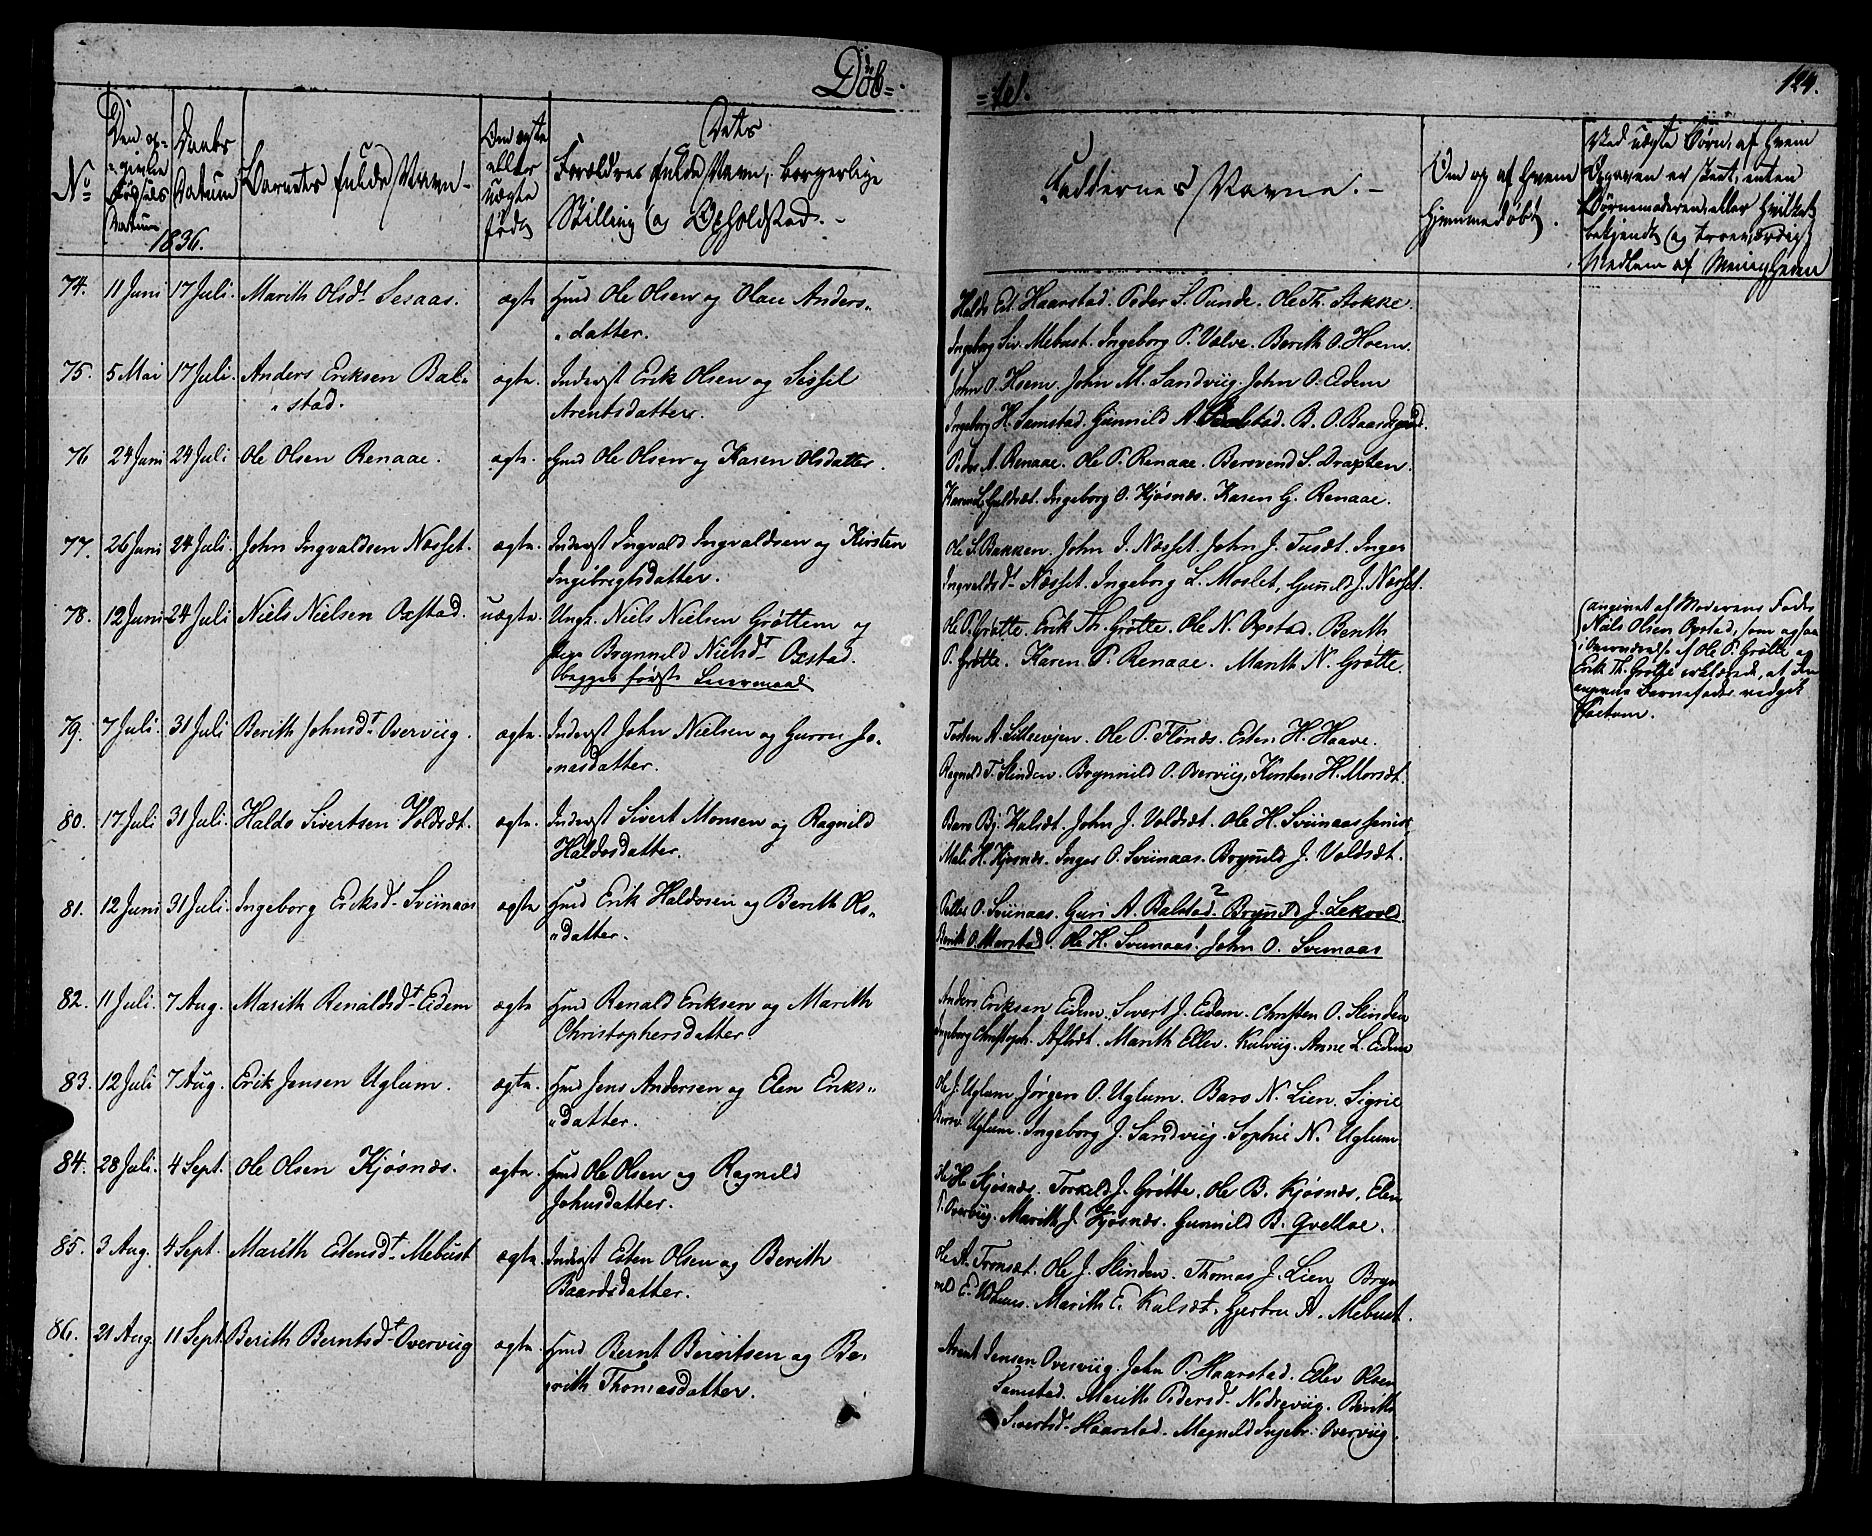 Døb=
=te.
124.
No
Den op-
givne
Fødsels
Datum
Daabs
Datum
1836.
Barnets fulde Navn
Om ægte
eller
uægte
født
Dets
Forældres fulde Navn, borgerlige
Stilling og Opholdstad.
Faddernes Navne.
Om og af hvem
hjemmedøbt.
Ved uægte Børn, af hvem
Opgaven er skeet, enten
Børnemoderen, eller hvilket
bekjendt og troværdigt
Medlem af Menigheden
74. 11 Juni 17 Juli. Marith Olsdt Sesaas. ægte Hmd Ole Olsen og Olau Anders-
datter.
Haldo Est. Haarstad. Peder S. Punde. Ole Th. Stokke.
Ingeborg Siv. Mebust. Ingeborg P. Valve. Berith O. Hoem.
75. 5 Mai 17 Juli. Anders Eriksen Bal-
stad.
ægte. Inderst Erik Olsen og Sissel
Arentsdatter.
John O. Hoem. John M. Sandviig. John O. Eidem
Ingeborg H. Samstad. Gunnild A. Balstad. B. O. Baardsgaard.
76 24 Juni 24 Juli Ole Olsen Renaae. ægte. Hmd Ole Olsen og Karen Olsdatter.
Peder A. Renaae. Ole P. Renaae. Berevend S. Draxten.
Karen L. Guldsæt. Ingeborg O. Kjøsnæs. Karen G. Renaae.
77. 26 Juni 24 Juli John Ingvaldsen Næsset. ægte. Inderst Ingvald Ingvaldsen og Kirsten
Ingibrigtsdatter.
Ole S. Bakken. John I. Næsset. John J. Tusæt. Inger
Ingvaldsdt Næsset. Ingeborg L. Moslet, Gunild J. Næsset.
78. 12 Juni 24 Juli Niels Nielsen Oxstad. uægte. Ungk. Niels Nielsen Grøttem og
Pige Brynnild Nielsdt Oxstad.
begges første Leiermaal
Ole P. Grøtte. Erik Th. Grøtte. Ole N. Oxstad. Berith
P. Grøtte. Karen P. Renaae. Marith N. Grøtte.
(angivet af Moderens Fader
Niels Olsen Oxstad, som ogsaa
i Overværelse af Ole P. Grøtte og
Erik Th. Grøtte erklærede, at den
opgivne Barnefader vedgik
factum.
79. 7 Juli. 31 Juli Berith Johnsdt Overviig. ægte. Inderst John Nielsen og Gurru Jo-
nasdatter.
Torsten A. Lillevejen. Ole P. Flønæs. Esten H. Haave.
Ragnild T. Slinden. Brynnild O. Overviig. Kirsten H. Morsæt.
80. 17 Juli 31 Juli. Haldo Sivertsen Voldsæt. ægte. Inderst Sivert Monsen og Ragnild
Haldosdatter.
Baro Bj. Kulsæt. John J. Voldsæt. Ole H. Sviinaas junior,
Mali H. Kjøsnæs. Inger O. Sviinaas. Brynild J. Voldsæt.
81. 12 Juni 31 Juli. Ingeborg Eriksdt Sviinaas ægte Hmd Erik Haldosen og Berith Ols-
datter.
Peder O. Sviinaas. Guri A. Balstad. Brynild J. Lekvold
Berith O. Morstad. Ole H. Sviinaas. John O. Sviinaas
82. 11 Juli. 7 Aug. Marith Renaldsdt Eidem ægte Hmd Renald Eriksen og Marith
Christophersdatter.
Anders Eriksen Eidem. Sivert J. Eidem. Christen O. Slinden
Ingeborg Christoph. Aftræt. Marith Ellev. Kulviig. Anne L. Eidem
83. 12 Juli 7 Aug. Erik Jensen Uglum. ægte. Hmd Jens Andersen og Elen Eriks-
datter.
Ole J. Uglum Jørgen O. Uglum. Baro N. Lien. Sigrie
Uglum. Ingeborg J. Sandviig. Sophie N. Uglum
84. 28 Juli. 4 Sept. Ole Olsen Kjøsnæs. ægte. Hmd Ole Olsen og Ragnild
Johnsdatter.
H. Kjøsnæs. Torkeld J. Grøtte. Ole B. Kjøsnæs. Elen
P. Overviig. Marith J. Kjøsnæs. Gunnild B. Qvelloe.
85. 3 Aug. 4 Sept. Marith Estensdt Mebust ægte. Inderst Esten Olsen og Berith
Baardsdatter.
Ole A. Tronsæt. Ole J. Slinden. Thomas J. Lien Bryn
Marith E. Kulsæt. Gjertru A. Mebust.
86. 21 Aug 11 Sept. Berith Berntsdt Overviig ægte. Hmd Bernt Berntsen og Be-
rith Thomasdatter.
Arent Jensen Overviig. John P. Haarstad. Ellev Olsen
Samstad. Marith Pedersdt Nedreviig. Berith
Sivertsdt Haarstad. Magnild Ingebr. Overviig.